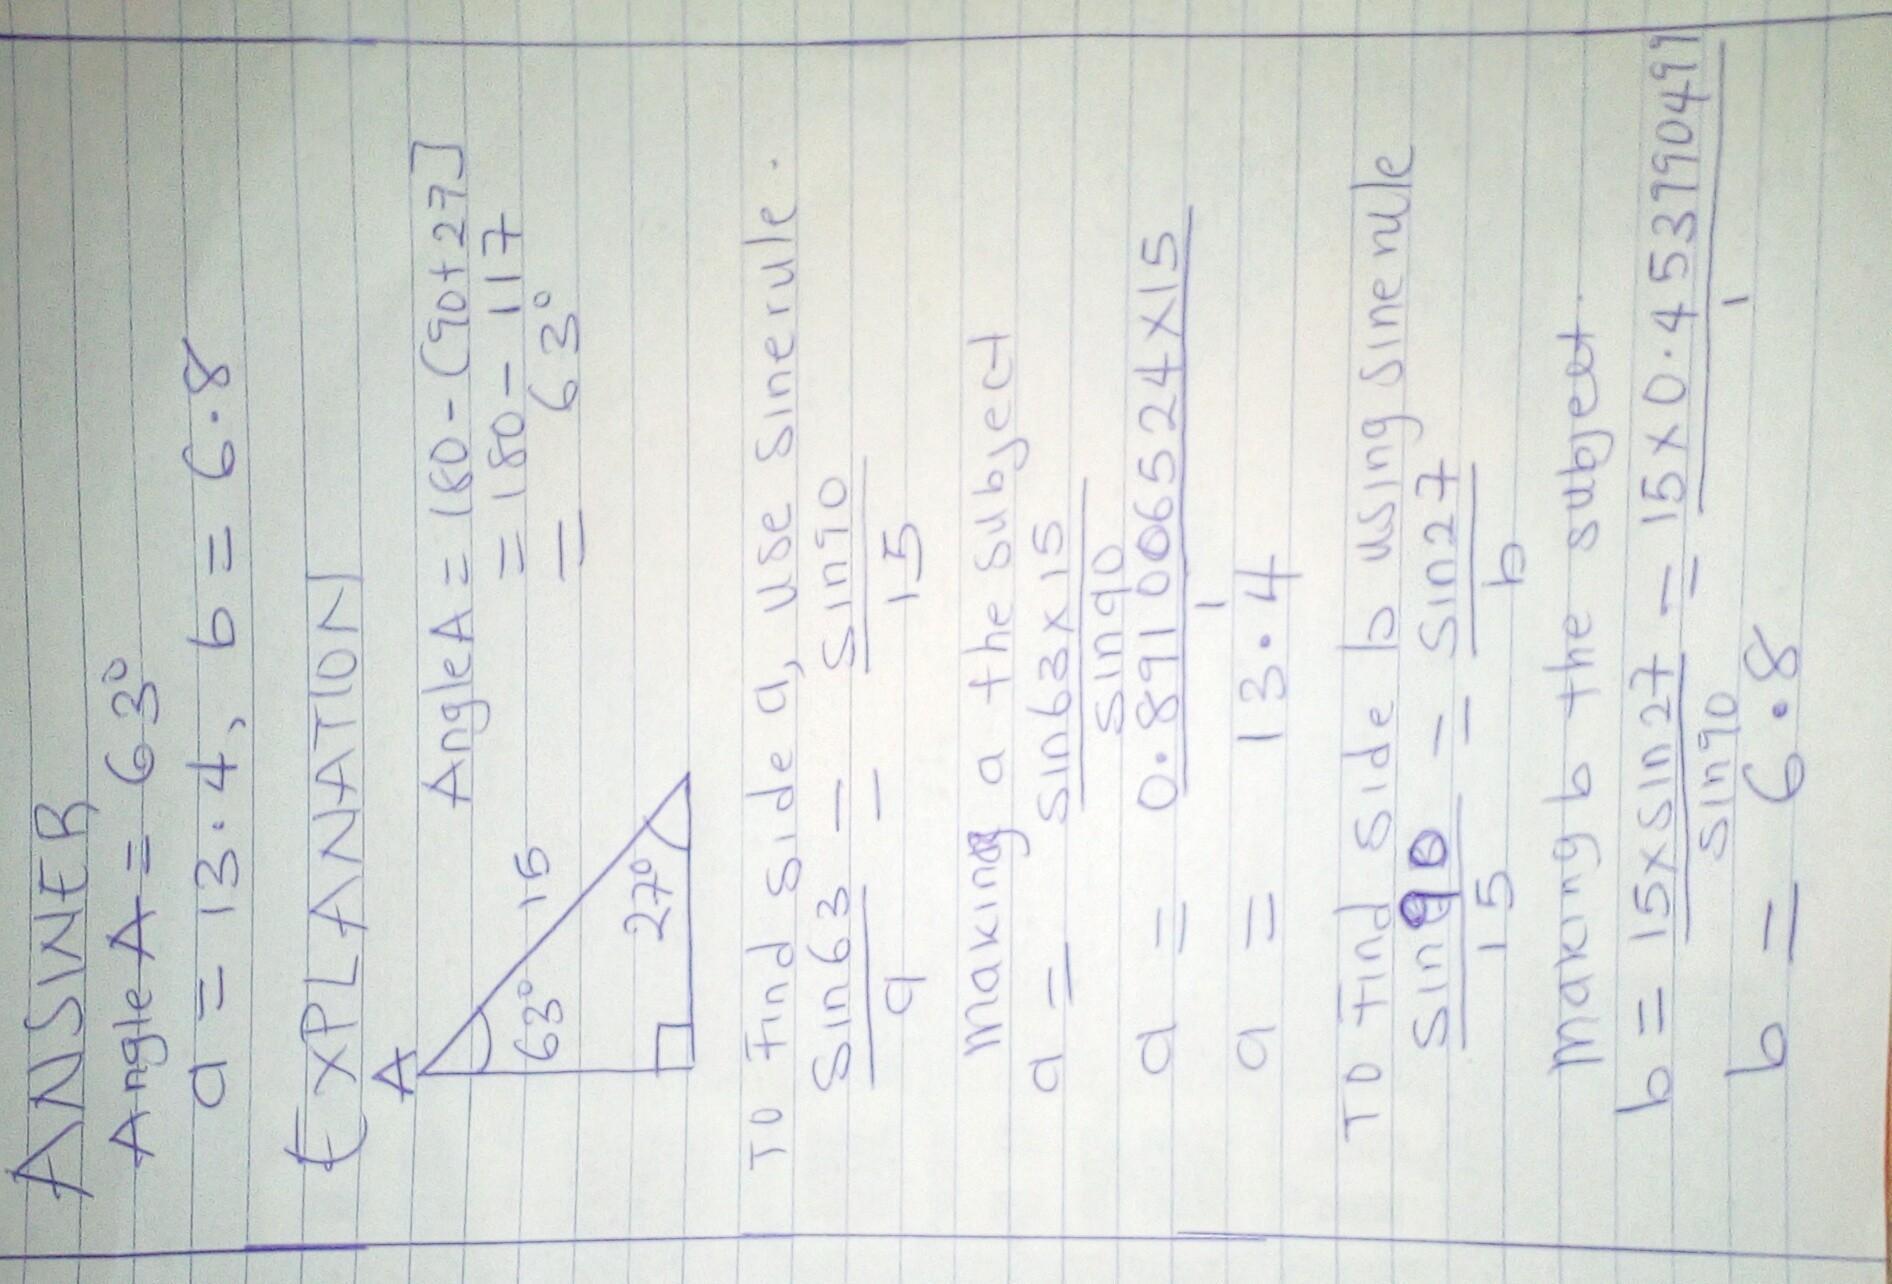 ANSWER
Angle A = 63°
a = 13.4, b = 6.8
EXPLANATION
A
63°
15
27°
Angle A = 180 - (90+27]
= 180 - 117
= 63°
TO Find Side a, use Sinerule.
Sin63/a = Sin90/15
making a the subject
a = Sin63x15/Sin90
a = 0.891006524x15/1
a = 13.4
TO Find Side b using Sinerule
Sin90/15 = Sin27/b
making b the subject.
b = 15xSin27/Sin90 = 15x0.4539904971/1
b = 6.8